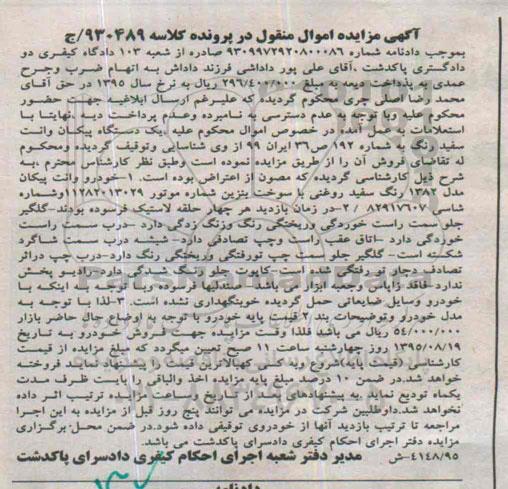 آگهی مزایده اموال منقول در پرونده کلاسه ۹۳۰۴۸۹/ج
بموجب دادنامه شماره ۹۳۰۹۹۷۲۹۲۰۸۰۰۰۸۶ صادره از شعبه ۱۰۳ دادگاه کیفری دو
دادگستری پاکدشت ،آقای علی پور داداشی فرزند داداش به اتهام ضرب وجرح
عمدی به پرداخت دیه معادل مبلغ ۲۹۶/۴۰۰/۰۰۰ ریال به نرخ سال ۱۳۹۵ در حق آقای
محمد رضا اصلی چری محکوم گردیده که علیرغم ارسال ابلاغیه جهت حضور
محکوم علیه وبا توجه به عدم دسترسی به نامبرده وعدم پرداخت دیه ،نهایتا با
استعلامات به عمل آمده در خصوص اموال محکوم علیه ،یک دستگاه پیکان وانت
سفید رنگ به شماره ۱۹۲ ص۳۶ ایران ۹۹ از وی شناسایی وتوقیف گردیده ومحکوم
له تقاضای فروش آن را از طریق مزایده نموده است وطبق نظر کارشناس محترم ،به
شرح ذیل کارشناسی گردیده که مصون از اعتراض بوده است. ۱-خودرو وانت پیکان
مدل ۱۳۸۲ رنگ سفید روغنی با سوخت بنزین شماره موتور ۱۱۲۸۲۰۱۳۰۲۹ وشماره
شاسی ۸۲۹۱۷۶۰۷ / ۲-در زمان بازدید هر چهار حلقه لاستیک فرسوده بودند-گلگیر
جلو سمت راست خوردگی وریختگی رنگ وزنگ زدگی دارد -درب سمت راست
خوردگی دارد -اتاق عقب راست وچپ تصادفی دارد- شیشه درب سمت شاگرد
شکسته است- گلگیر جلو سمت چپ تورفتگی وریختگی رنگ دارد-درب چپ دراثر
تصادف دچار تو رفتگی شده است-کاپوت جلو زنگ زدگی دارد-رادیو پخش
ندارد-فاقد زاپاس وجعبه ابزار می باشد- صندلیها فرسوده وبا توجه به اینکه با
خودرو وسایل ضایعاتی حمل گردیده خوبنگهداری نشده است. ۳-لذا با توجه به
مدل خودرو وتوضیحات بند ۲ قیمت پایه خودرو با توجه به اوضاع حال حاضر بازار
۵۴/۰۰۰/۰۰۰ ریال می باشد فلذا وقت مزایده جهت فروش خودرو به تاریخ
۱۳۹۵/۰۸/۱۹ روز چهارشنبه ساعت ۱۱ صبح تعیین میگردد که مبلغ مزایده از قیمت
کارشناسی (قیمت پایه)شروع وبه کسی کهبالاترین قیمت را پیشنهاد نماید فروخته
خواهد شد.در ضمن ۱۰ درصد مبلغ پایه مزایده اخذ والباقی را بایست ظرف مدت
یکماه تودیع نماید .به پیشنهادهای خارج از تاریخ وساعت مزایده ترتیب اثر داده
نخواهد شد.داوطلبین شرکت در مزایده می توانند پنج روز قبل از مزایده به این اجرا
مراجعه تا ترتیب بازدید آنها از خودروی توقیفی داده شود.در ضمن محل برگزاری
مزایده دفتر اجرای احکام کیفری دادسرای پاکدشت می باشد.
۴۱۴۸/۹۵-ش مدیر دفتر شعبه اجرای احکام کیفری دادسرای پاکدشت
دادنامه